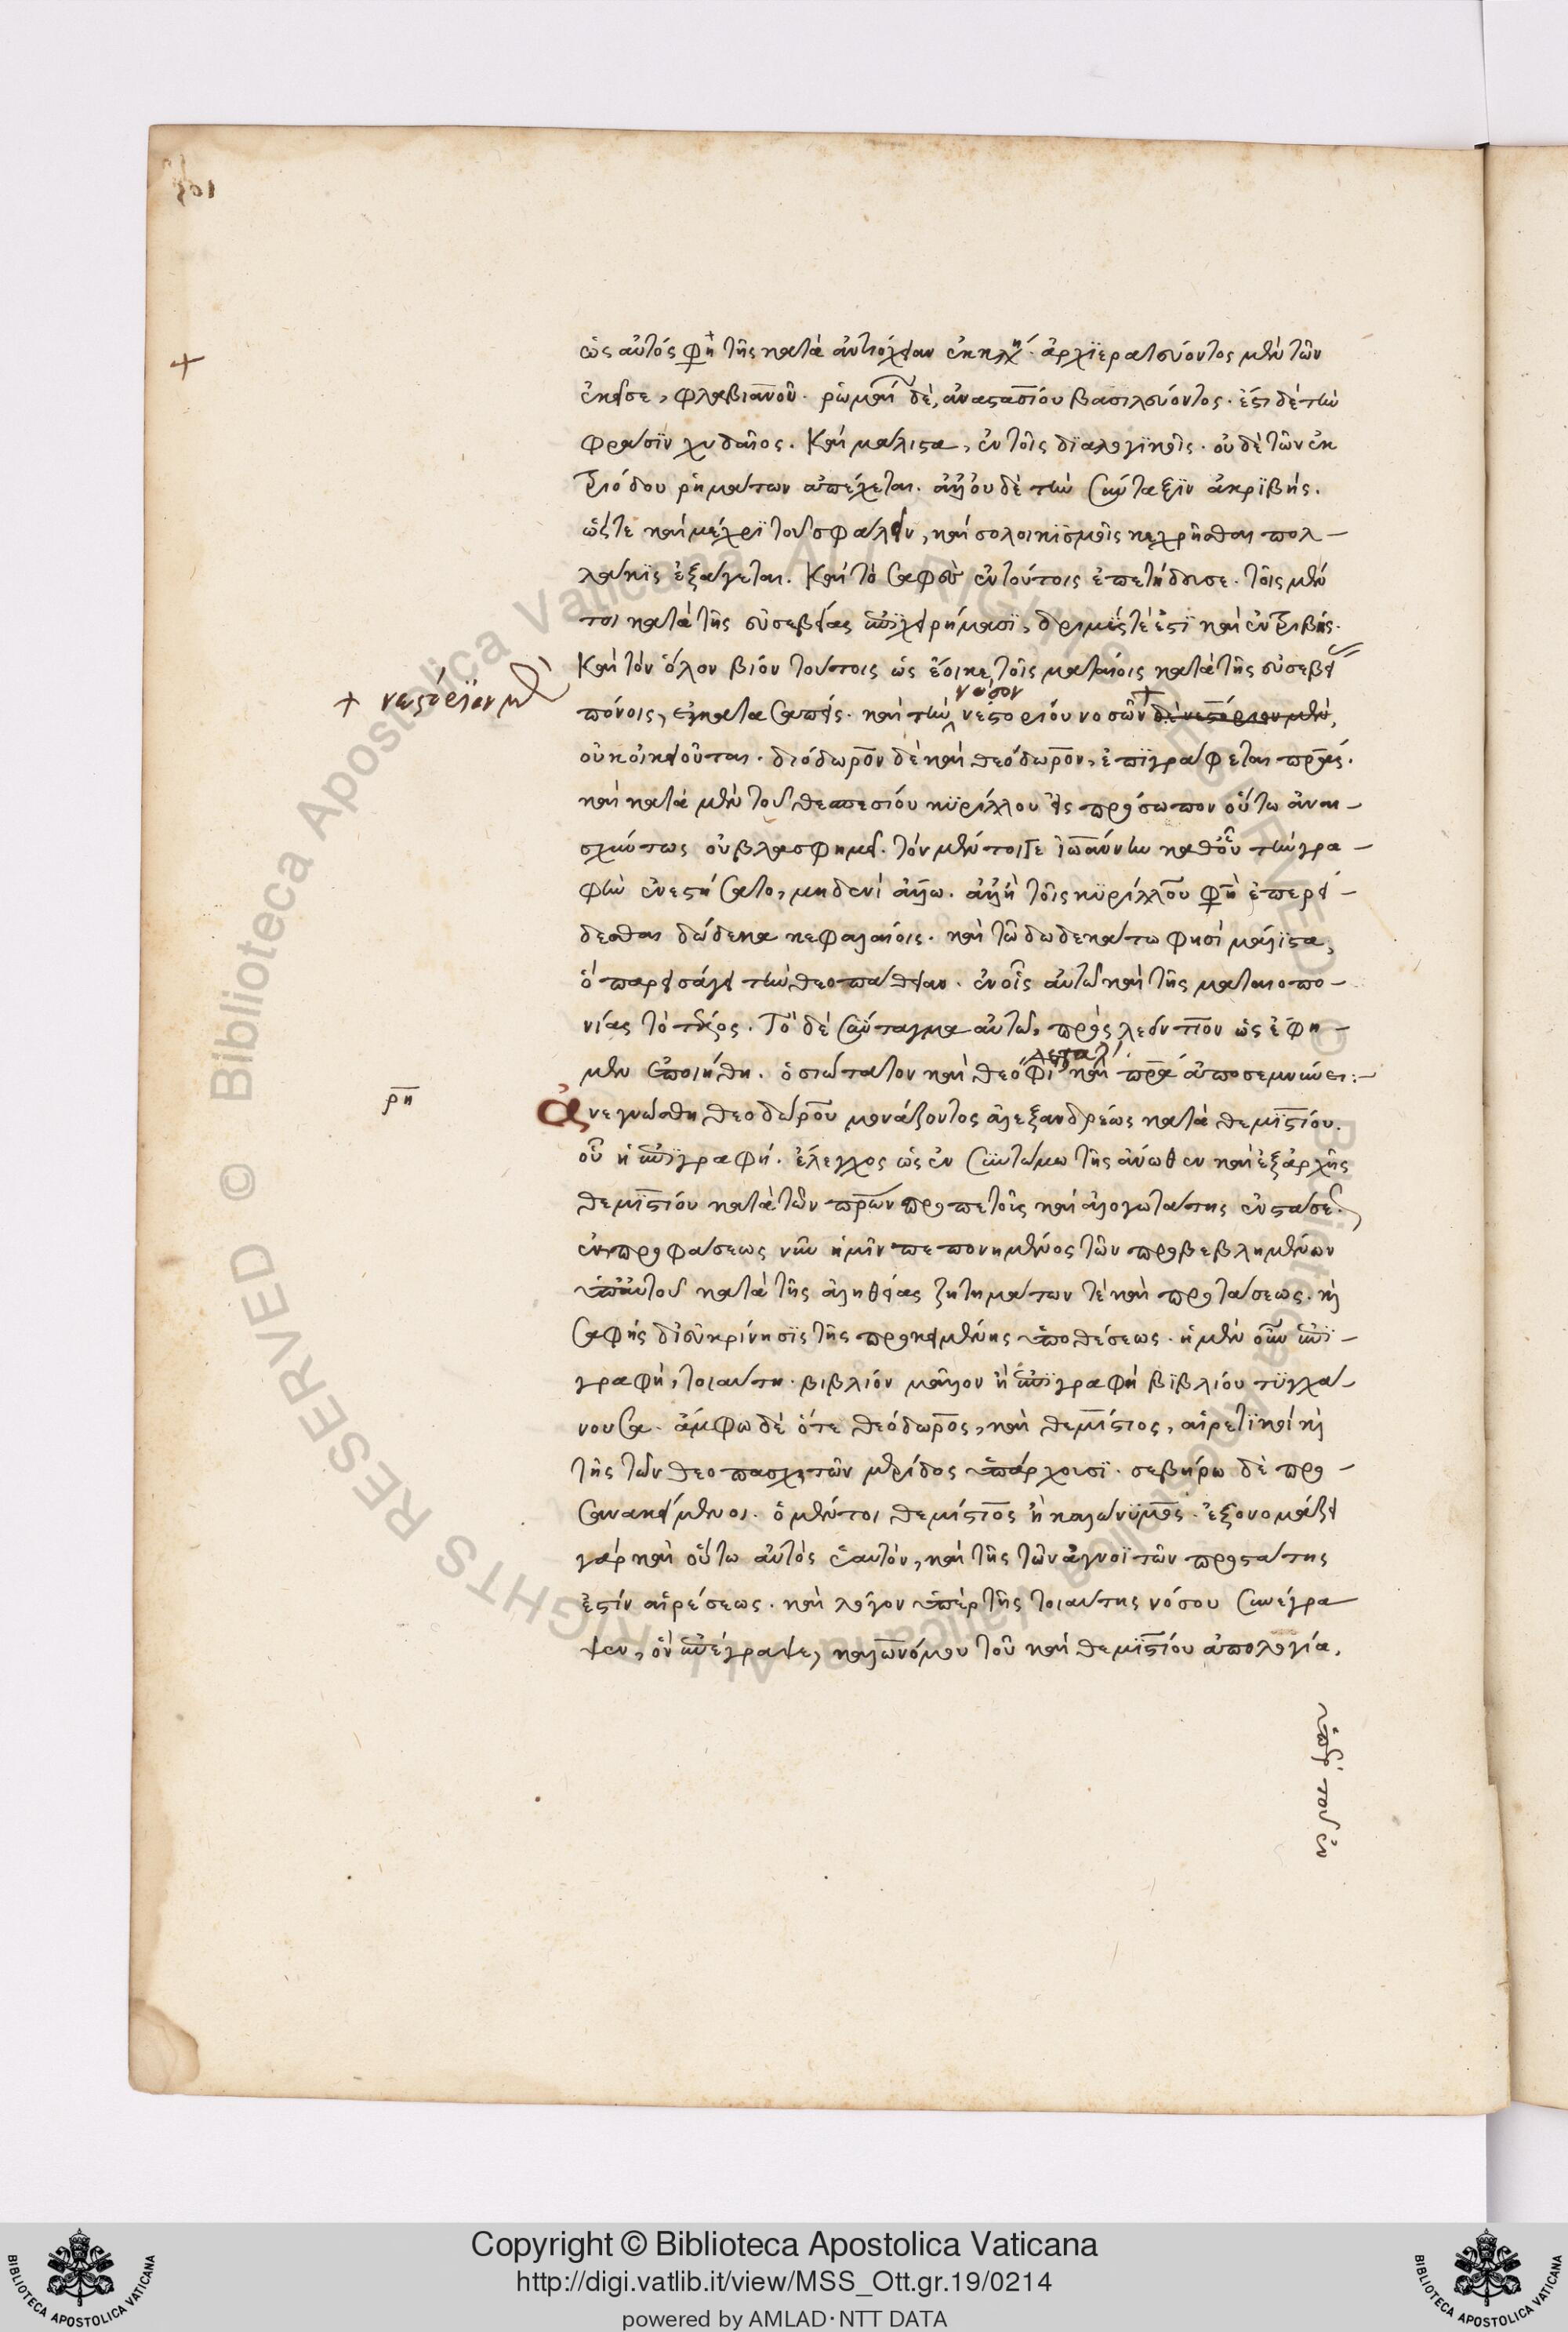 ὡς αὐτός φη τῆς κατὰ ἀντιόχειαν ἐκκλη. ἀρχϊερατεύοντος μὲν τῶν
ἐκεῖσε, φλαβιανοῦ. ῥωμαί δὲ, ἀναστασίου βασιλεύοντος. ἔστι δὲ τὴν
φράσϊν χυδαῖος. Καὶ μάλιστα, ἐν τοῖς δϊαλογϊκοῖς. οὐδὲ τῶν ἐκ
τριόδου ῥημάτων ἀπέχεται. ἀλλ' οὐδὲ τὴν σύνταξϊν ἀκρϊβής.
ὥστε καὶ μέχρϊ τοῦ σφαλεῖν, καὶ σολοικϊσμοῖς κεχρῆσθαι πολ-
λάκϊς ἐξάγεται. Καὶ τὸ σαφὲς ἐν τούτοις ἐπετήδευσε. τοῖς μέν
τοι κατὰ τῆς εὐσεβείας ἐπϊχειρήμασϊ, δριμύς τέ ἐστϊ καὶ ἐντριβής.
Καὶ τὸν ὅλον βίον τούτοις ὡς ἔοικε τοῖς ματαίοις κατὰ τῆς εὐσεβεί
+ νεστόρϊον μὲν
πόνοις, ἐγκατασαπείς. καὶ τὴν νόσον νεστορίου νοσῶν + δὲ νεστόριον μὲν,
οὐκ οἰκειοῦται. διόδωρον δὲ καὶ θεόδωρον, ἐπϊγράφεται πρας.
καὶ κατὰ μὲν τοῦ θεσπεσίου κϋρίλλου εἰς πρόσωπον οὕτω ἀναι-
σχύντως οὐ βλασφημεῖ. τὸν μέντοιγε ἰωάννην καθ' οὗ τὴν γρα-
φὴν ἐνεστήσατο, μηδενὶ ἄλλω. ἀλλ' ἢ τοῖς κϋρίλλου φη ἐπερεί-
δεσθαι δώδεκα κεφαλαίοις. καὶ τῶ δωδεκάτω φησὶ μάλϊστα,
ὃ παρεισάγει τὴν θεοπάθειαν. ἐν οἷς αὐτῶ καὶ τῆς ματαιοπο-
νίας τὸ τέλος. Τὸ δὲ σύνταγμα αὐτῶ, πρὸς λεόντιον ὡς ἔφη-
μεν ἐποιήθη. ὁσιώτατον καὶ θεοφι καὶ πρα ἀποσεμνύνει:-
ρη
Ἀνεγνώσθη θεοδώρου μονάζοντος ἀλεξανδρέως κατὰ θεμϊστίου.
οὗ ἡ ἐπϊγραφή. ἔλεγχος ὡς ἐν συντόμω τῆς ἄνωθεν καὶ ἐξ ἀρχῆς
θεμϊστίου κατὰ τῶν πρων προπετοῦς καὶ ἀλογωτάτης ἐνστάσε.
ἐκ προφάσεως νῦν ἡμῖν πεπονημένος τῶν προβεβλημένων
ὑπ' αὐτοῦ κατὰ τῆς ἀληθείας ζητημάτων τὲ καὶ προτάσεως. κὶ
σαφὴς δϊευκρίνησϊς τῆς προκειμένης ὑποθέσεως. ἡ μὲν οὖν ἐπϊ-
γραφὴ, τοιαύτη. βιβλίον μᾶλλον ἢ ἐπϊγραφὴ βϊβλίου τϋγχά-
νουσα. ἄμφω δὲ ὅτε θεόδωρος, καὶ θεμίστιος, αἱρετϊκοί κὶ
τῆς τῶν θεοπασχητῶν μερίδος ὑπάρχουσϊ. σεβήρω δὲ προ-
σανακείμενοι. ὁ μέντοι θεμίστιος ἢ καλώνϋμος. ἐξονομάζει
γὰρ καὶ οὕτω αὐτὸς ἑαυτὸν, καὶ τῆς τῶν ἀγνοϊτῶν προστάτης
ἐστὶν αἱρέσεως. καὶ λόγον ὑπὲρ τῆς τοιαύτης νόσου συνέγρα
ψεν, ὃν ἐπέγραψε, καλωνύμου τοῦ καὶ θεμϊστίου ἀπολογία,
ὑπὲρ τοῦ ἐν
Copyright © Biblioteca Apostolica Vaticana
http://digi.vatlib.it/view/MSS_Ott.gr.19/0214
powered by AMLAD·NTT DATA
BIBLIOTECA APOSTOLICA VATICANA
BIBLIOTECA APOSTOLICA VATICANA
© Biblioteca Apostolica Vaticana ALL RIGHTS RESERVED